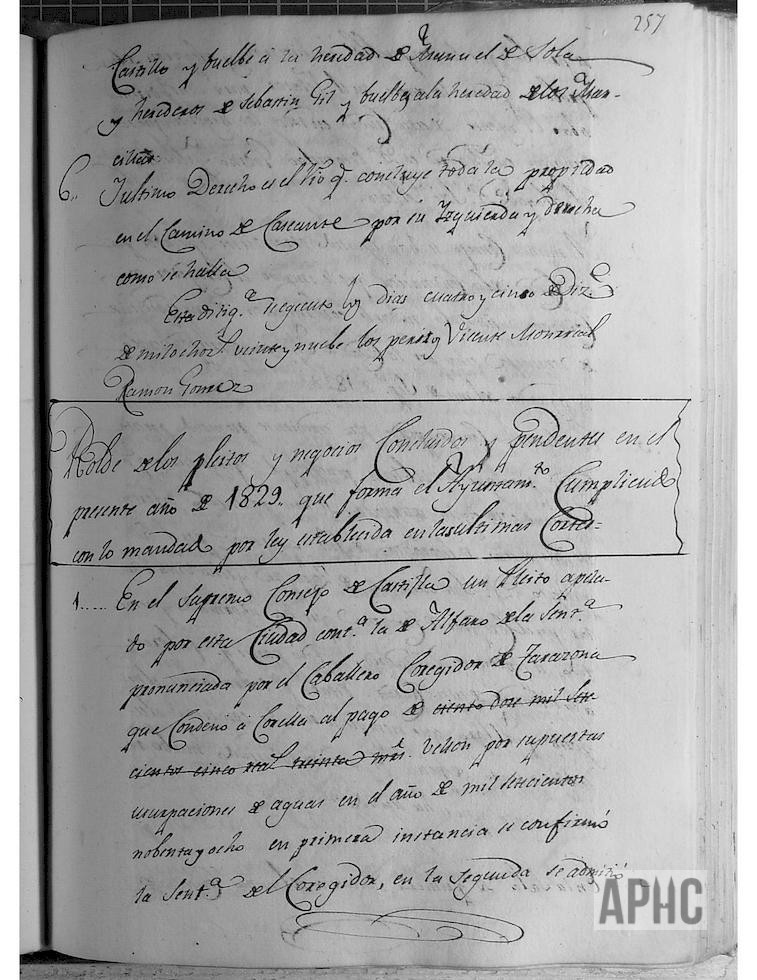 257
Castillo y buelbe á la heredad de Manuel de Sola
y herederos de Sebastin Gil y buelbe ala heredad de los Mar-
cillas
6,, Yultimo Derecho es el q.e concluye toda la propiedad
en el Camino de Cascante por su Izquierda y derecha
como se halla
Esta dilig.a se egecuto los dias cuatro y cinco de Diz.e
de mil ochos.s veinte y nuebe los peritos Vicente Monrreal
Ramon Gomez
Rolde de los pleitos y negocios Concluidos y pendentes en el
presente año de 1829,, que forma el Ayuntam.to Cumpliendo
con lo mandado por ley establecida en las ultimas Cortes=
1..... En el Supremo Consejo de Castilla un Pleito apela-
do por esta Ciudad cont.a la de Alfaro de la Sent.a
pronunciada por el Caballero Coregidor de Tarazona
que Condenó á Corella al pago de ciento doce mil sete
cientos cinco real.s treinta mrs. vellon por supuestas
usurpaciones de aguas en el año de mil setecientos
nobenta y ocho en primera instancia se confirmó
la Sent.a del Coregidor, en la segunda se admitió
APHC